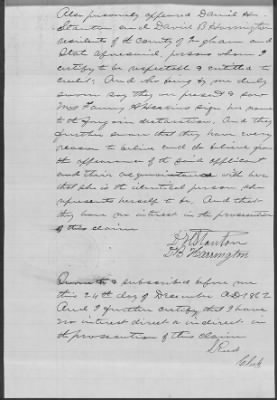 Also personly appeared Daniel H
Stanton and David B Herrington
residents of the county of Ingham and
State aforesaid persons whom I
certify to be respectable & entitled to
credit: And who being by me duly
sworn say they were present & saw
Mrs Fanny Haskins sign her name
to the foregoin declaration. And they
further swear that they have every
reason to belive and do believe from
the appearance of the said applicant
and their acquaintance with her
that she is the identical person she
represents herself to be. And that
they have no interest in the prosecution
of this claim
D H Stanton
D B Herrington
Sworn to & subscribed before me
this 24th day of December AD 1862
And I further certify that I have
no interest direct or indirect in
the prosecution of this claim
Clerk